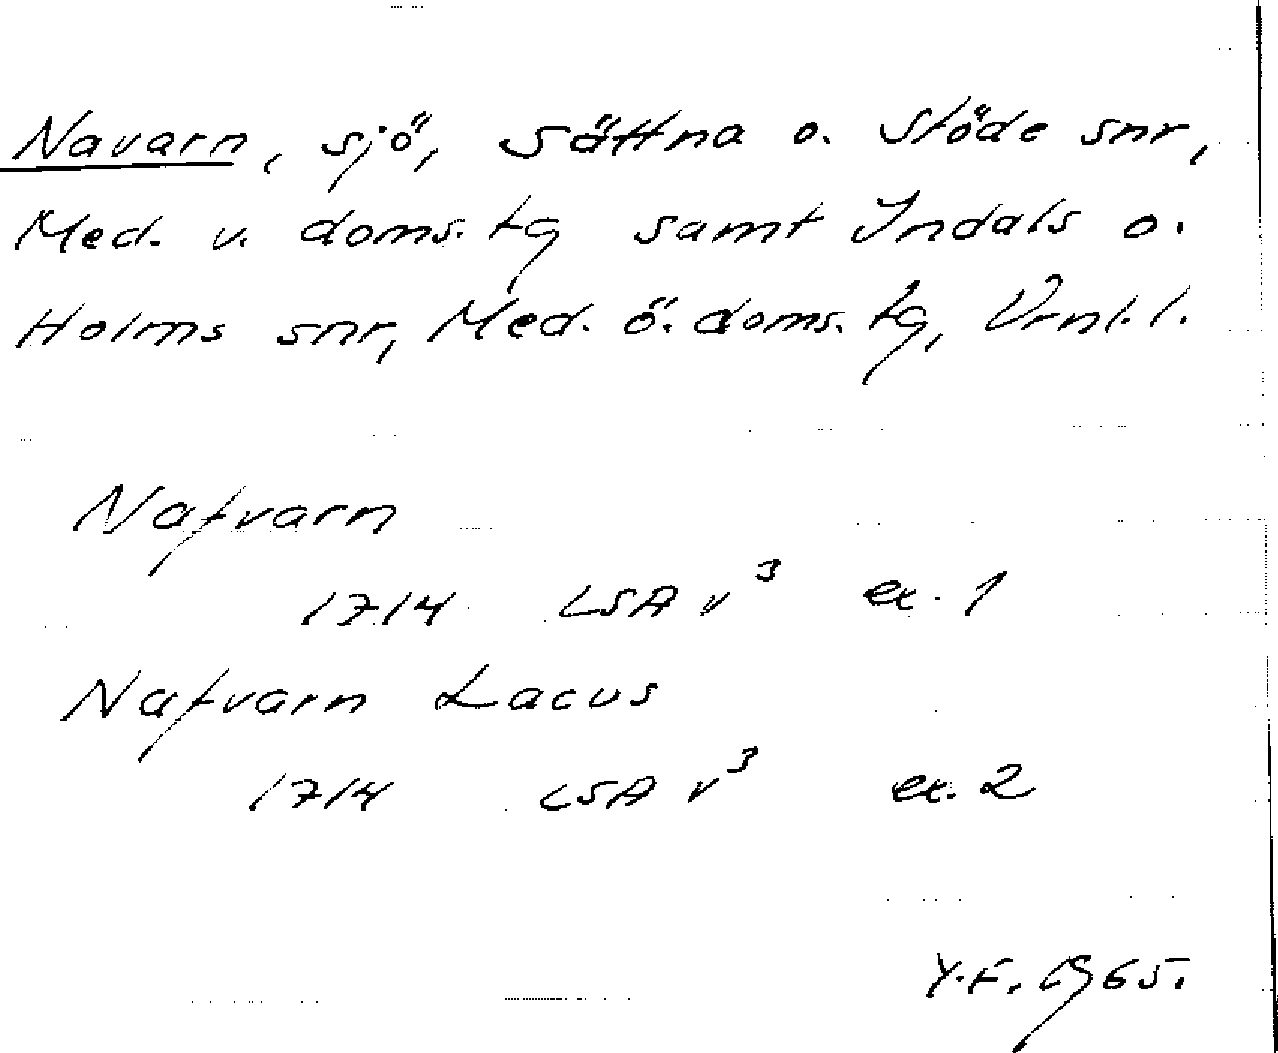 Navarn, sjö, Sättna o. Stöde snr,
Med. v. doms. tg samt Indals o.
Holms snr, Med. ö. doms. tg, Vrnl. l.
Nafvarn
1714 LSA v³ ex. 1
Nafvarn Lacus
1714 LSA v³ ex. 2
Y.F. 1965.